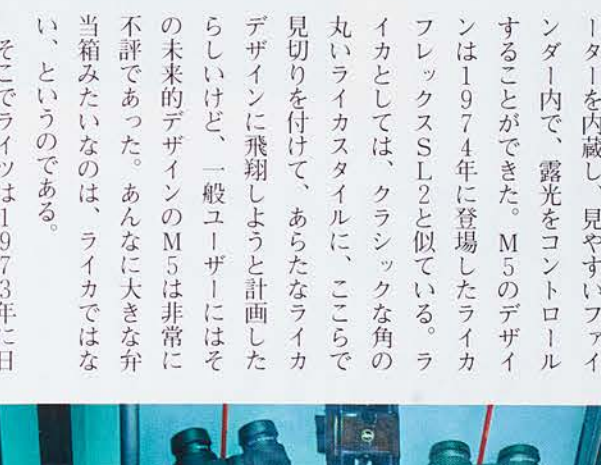 ーターを内蔵し、見やすいファイ
ンダー内で、露光をコントロール
することができた。M5のデザイ
ンは1974年に登場したライカ
フレックスSL2と似ている。ラ
イカとしては、クラシックな角の
丸いライカスタイルに、ここらで
見切りを付けて、あらたなライカ
デザインに飛翔しようと計画した
らしいけど、一般ユーザーにはそ
の未来的デザインのM5は非常に
不評であった。あんなに大きな弁
当箱みたいなのは、ライカではな
い、というのである。
そこでライツは1973年に日